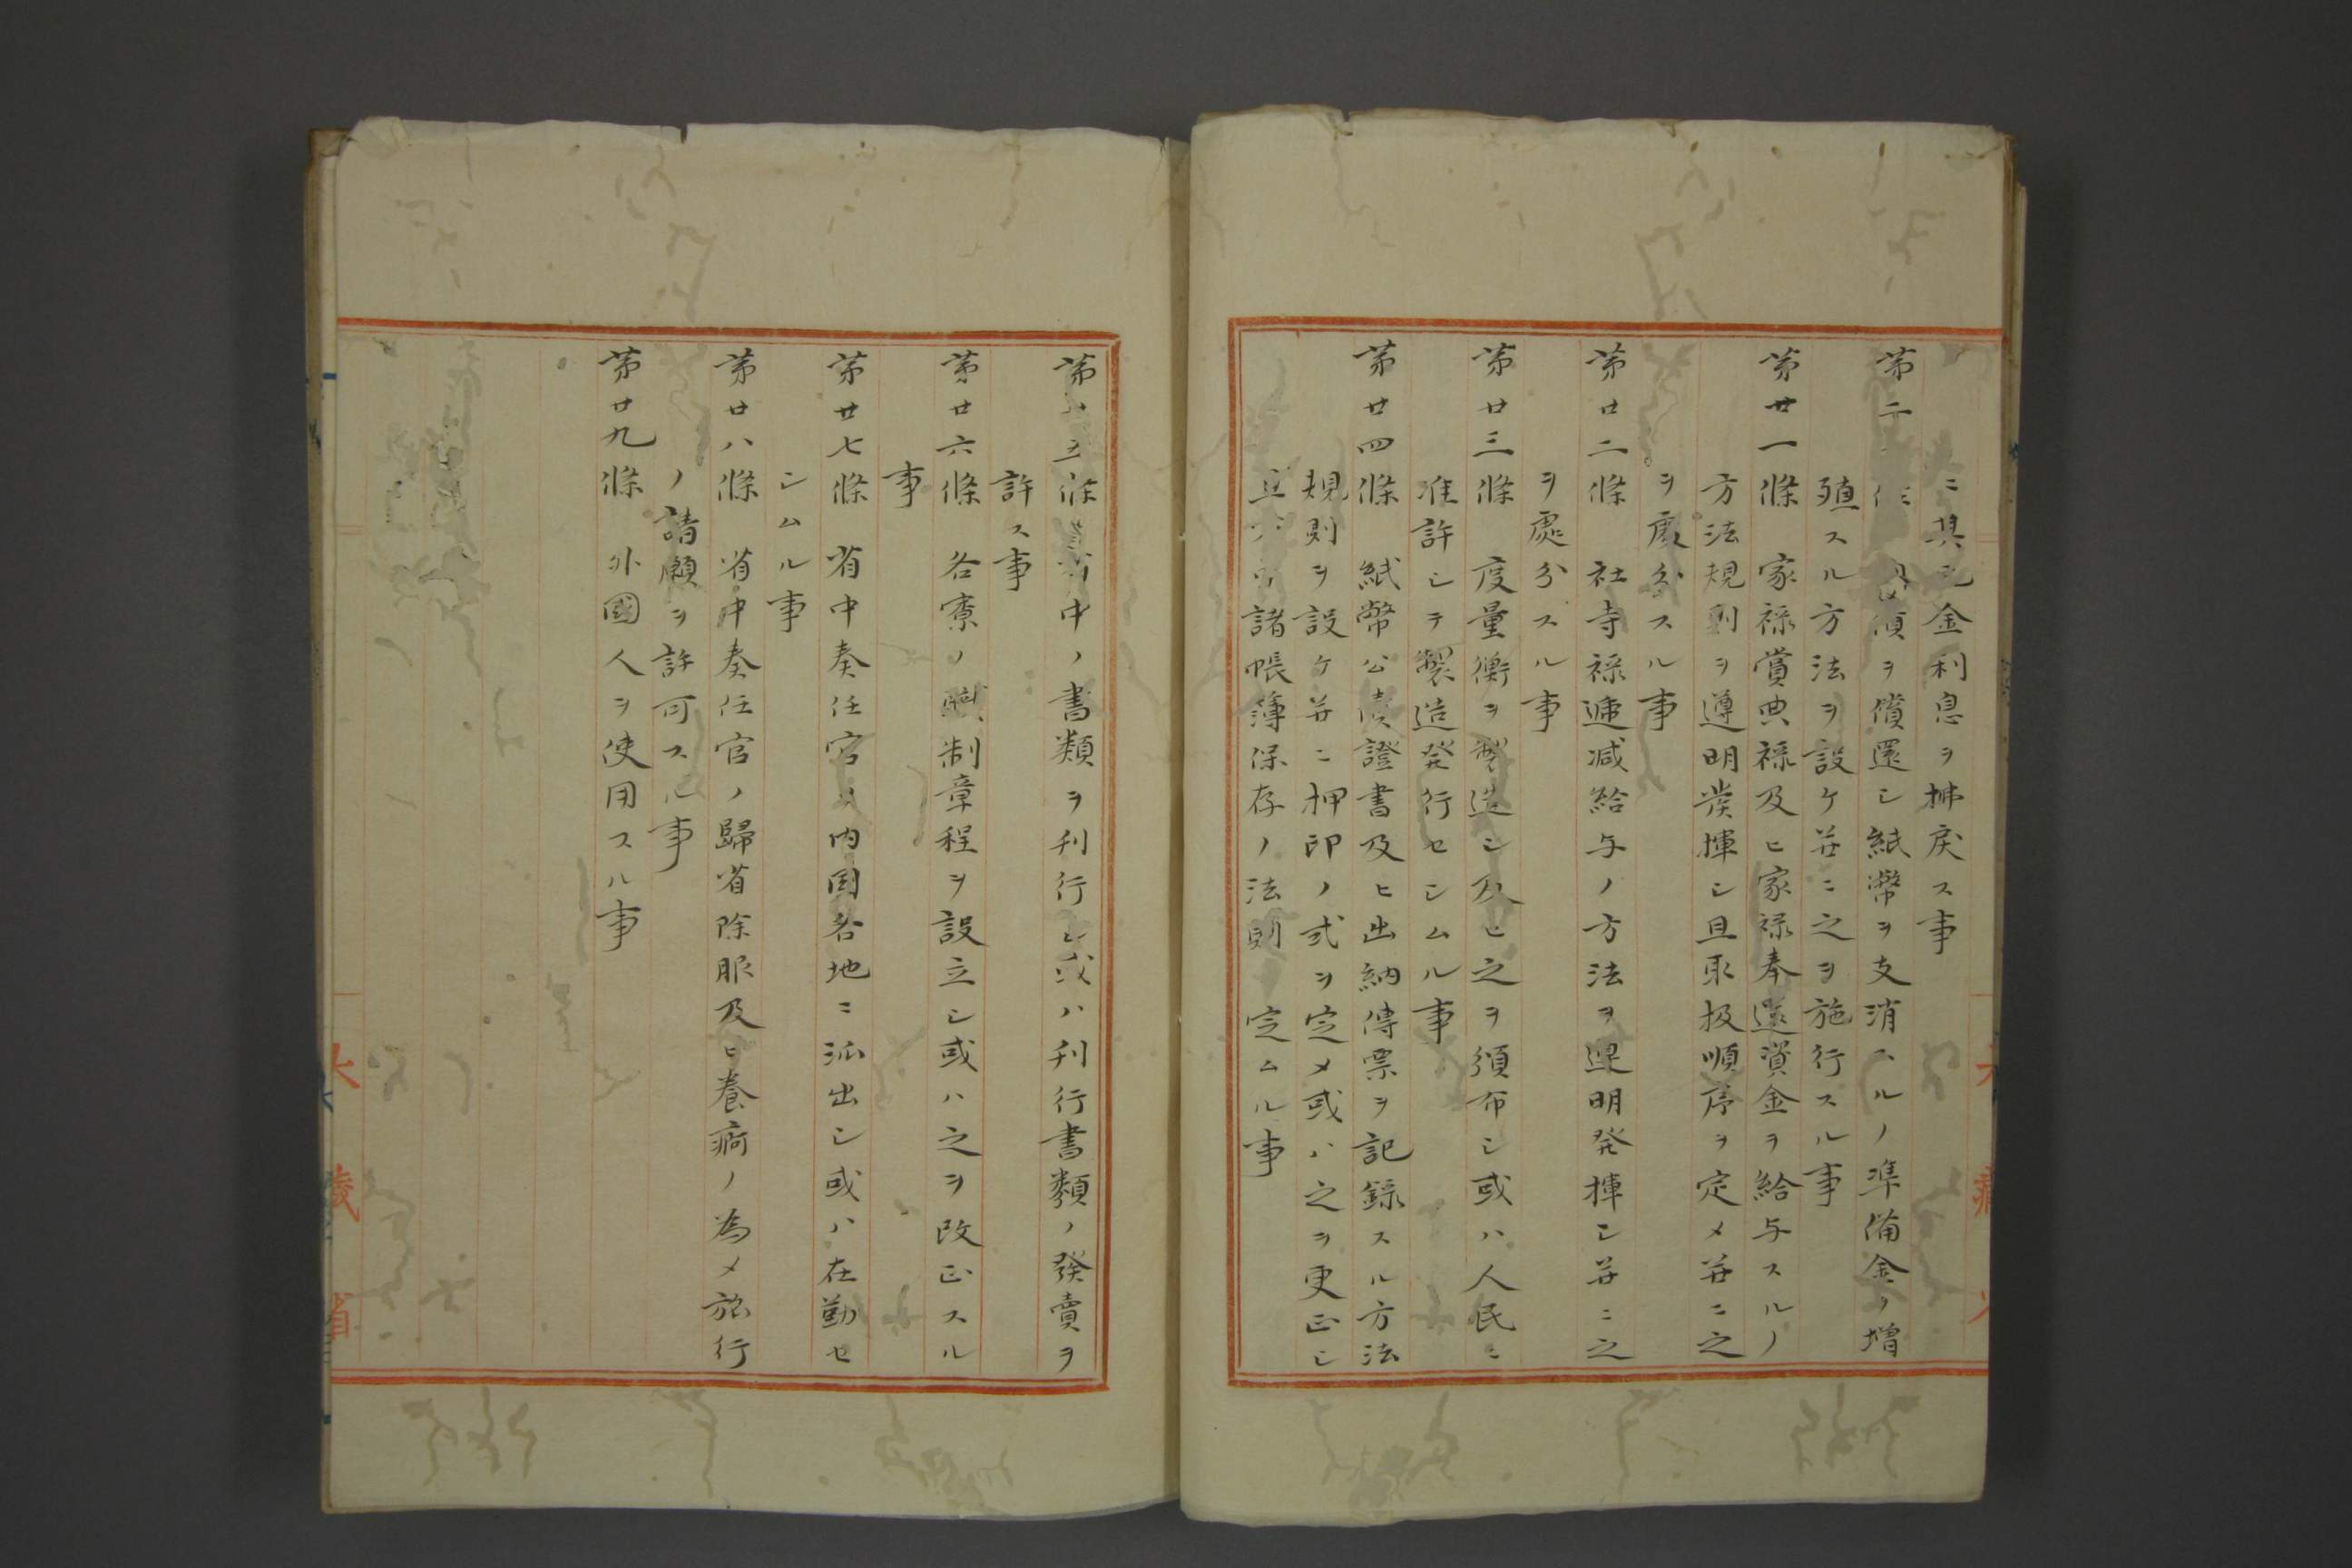 ニ其元金利息ヲ拂戻ス事
第二 債ヲ償還シ紙幣ヲ支消スルノ準備金ヲ増
殖スル方法ヲ設ケ並ニ之ヲ施行スル事
第廿一條 家禄賞典禄及ヒ家禄奉還資金ヲ給与スルノ
方法規則ヲ遵明発揮シ且取扱順序ヲ定メ並ニ之
ヲ處分スル事
第廿二條 社寺禄逓減給与ノ方法ヲ遵明発揮シ並ニ之
ヲ處分スル事
第廿三條 度量衡ヲ製造シ及ヒ之ヲ頒布シ或ハ人民ニ
准許シテ製造発行セシムル事
第廿四條 紙幣公債證書及ヒ出納傳票ヲ記録スル方法
規則ヲ設ケ並ニ押印ノ式ヲ定メ或ハ之ヲ更正シ
諸帳簿保存ノ法則 定ムル事
第廿五條 中ノ書類ヲ刊行シ或ハ刊行書類ノ發賣ヲ
許ス事
第廿六條 各寮ノ職制章程ヲ設立シ或ハ之ヲ改正スル
事
第廿七條 省中奏任官ヲ内国各地ニ派出シ或ハ在勤セ
シムル事
第廿八條 省中奏任官ノ歸省除服及ヒ養痾ノ為メ旅行
ノ請願ヲ許可スル事
第廿九條 外國人ヲ使用スル事
大藏省